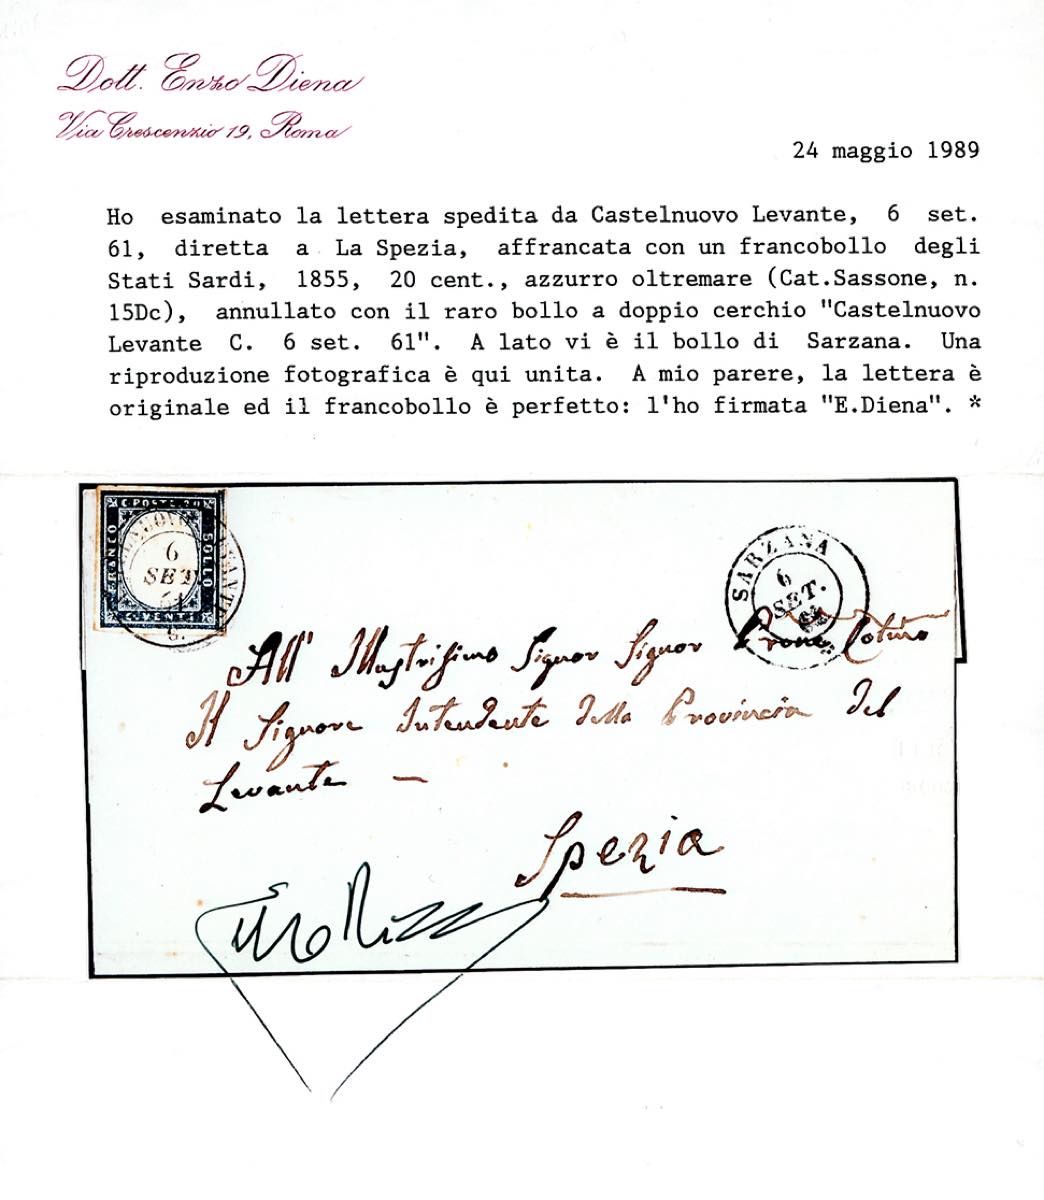 Dott. Enzo Diena
Via Crescenzio 19, Roma
24 maggio 1989
Ho esaminato la lettera spedita da Castelnuovo Levante, 6 set.
61, diretta a La Spezia, affrancata con un francobollo degli
Stati Sardi, 1855, 20 cent., azzurro oltremare (Cat.Sassone, n.
15Dc), annullato con il raro bollo a doppio cerchio "Castelnuovo
Levante C. 6 set. 61". A lato vi è il bollo di Sarzana. Una
riproduzione fotografica è qui unita. A mio parere, la lettera è
originale ed il francobollo è perfetto: l'ho firmata "E.Diena". *
C. POSTE 20
FRANCO
BOLLO
C. VENTI
6
SET
61
SARZANA
6
SET.
61
All' Illustrissimo Signor Signor
Il Signore Intendente della Provincia del
Levante —
Spezia